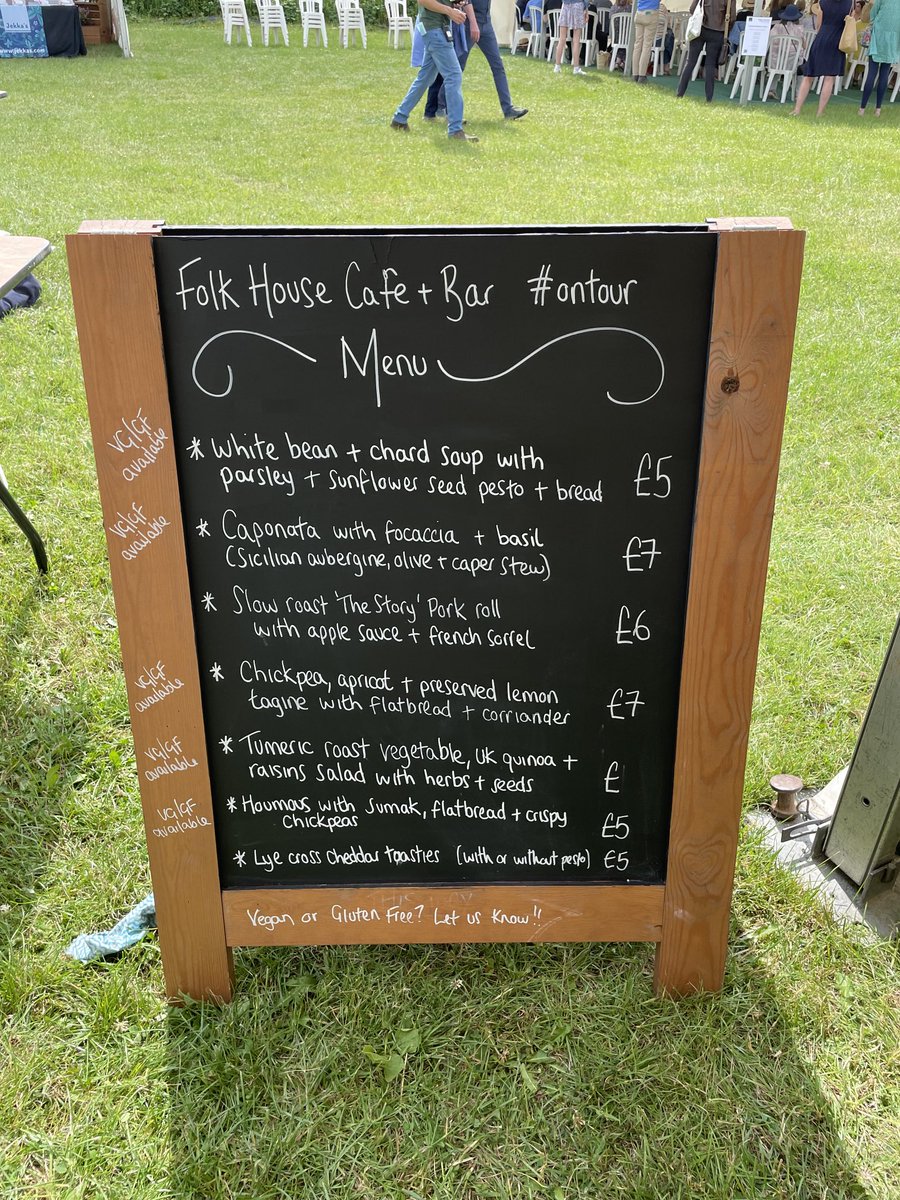 Jekka's
www.jekkas.com
Folk House Cafe + Bar #ontour
Menu
VG/GF
available
* White bean + chard soup with
parsley + sunflower seed pesto + bread £5
VG/GF
available
* Caponata with focaccia + basil
(Sicilian aubergine, olive + caper stew) £7
* Slow roast 'The Story' Pork roll
with apple sauce + french sorrel £6
VG/GF
available
* Chickpea, apricot + preserved lemon
tagine with flatbread + corriander £7
VG/GF
available
* Tumeric roast vegetable, UK quinoa +
raisins salad with herbs + seeds £
VG/GF
available
* Houmous with Sumak, flatbread + crispy
chickpeas £5
* Lye cross cheddar toasties (with or without pesto) £5
Vegan or Gluten Free? Let us know!!